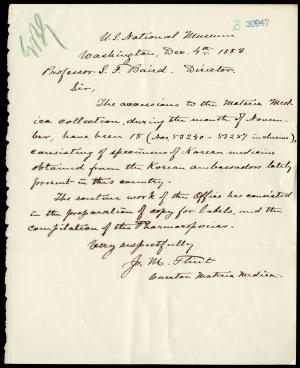 S 30947
U.S. National Museum
Washington, Dec. 4th 1883
Professor S. F. Baird. Director.
Sir,
The accessions to the Materia Med-
ica collection, during the month of Novem-
ber, have been 18 (Nos 53240 - 53257 inclusive),
consisting of specimens of Korean medicine
obtained from the Korean ambassadors lately
present in this country.
The routine work of the Office has consisted
in the preparation of copy for labels, and the
compilation of the Pharmacopoeias.
Very respectfully
J. M. Flint
Curator Materia Medica.